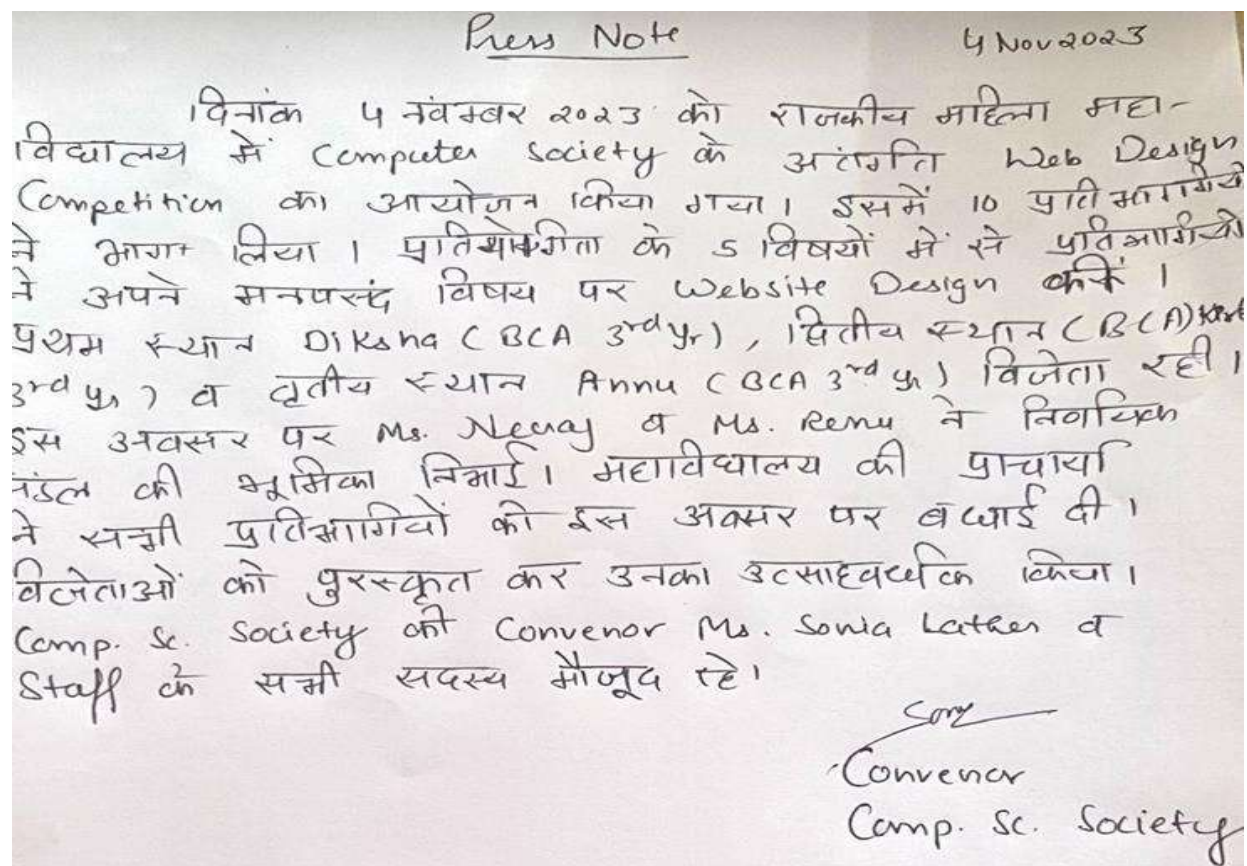 Press Note 4 Nov 2023
दिनांक 4 नवम्बर 2023 को राजकीय महिला महा-
विद्यालय में Computer Society के अंतर्गत Web Design
Competition का आयोजन किया गया। इसमें 10 प्रतिभागियों
ने भाग लिया। प्रतियोगिता के 5 विषयों में से प्रतिभागियों
ने अपने मनपसंद विषय पर Website Design की।
प्रथम स्थान Diksha (BCA 3rd yr), द्वितीय स्थान (BCA)
3rd yr) व तृतीय स्थान Annu (BCA 3rd yr) विजेता रही।
इस अवसर पर Ms. Neeraj व Ms. Renu ने निर्णायक
मंडल की भूमिका निभाई। महाविद्यालय की प्राचार्या
ने सभी प्रतिभागियों को इस अवसर पर बधाई दी।
विजेताओं को पुरस्कृत कर उनका उत्साहवर्धन किया।
Comp. Sc. Society की Convenor Ms. Sonia Lather व
Staff के सभी सदस्य मौजूद रहे।
Convenor
Comp. Sc. Society